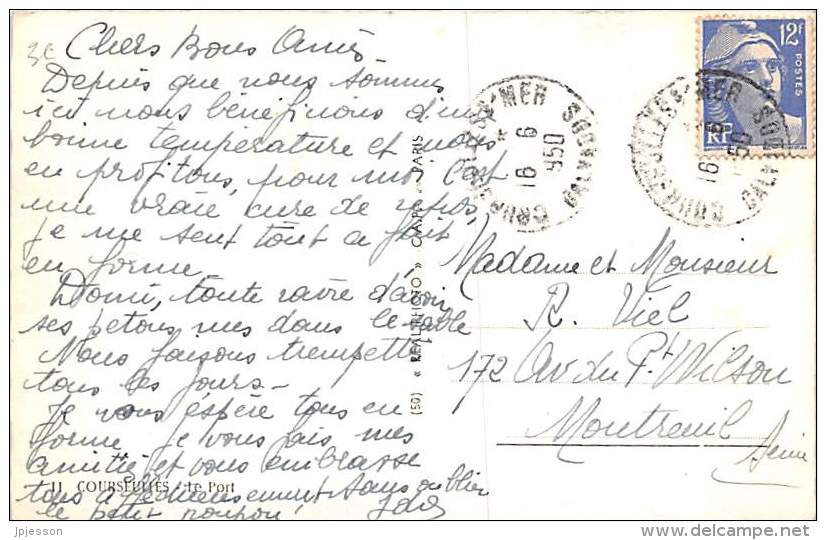 Chers Bons Amis
Depuis que nous sommes
ici nous bénéficions d'une
bonne température et nous
en profitons, pour moi c'est
une vraie cure de repos,
je me sent tout a fait
en forme.
Domi, toute ravie d'avoir
ses petons nus dans le sable
Nous faisons trempette
tous les jours -
Je vous espère tous en
forme je vous fais mes
amitié et vous embrasse
tous affectueusement sans oublier
le petit poupou!
11 COURSEULLES - Le Port
(50) « REAL-PHOTO » C.A.P. PARIS
COURSEULLES S/ MER CALVADOS
* 16 6 950
COURSEULLES S/ MER CALVADOS
16 6 950
12F
POSTES
RF
Madame et Monsieur
R. Viel
172 Av du Pt Wilson
Montreuil
Seine
jpjesson
www.delcampe.net